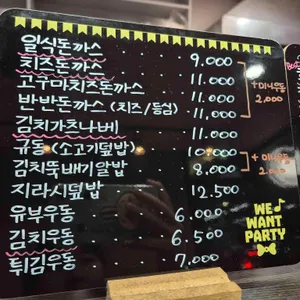 일식돈까스 9,000
치즈돈까스 11,000
고구마치즈돈까스 11,000
반반돈까스 (치즈/등심) 11,000
+미니우동
2,000
김치가츠나베 11,000
규동 (소고기덮밥) 10,000
김치뚝배기알밥 8,000
+미니우동
2,000
지라시덮밥 12,500
유부우동 6,000
김치우동 6,500
튀김우동 7,000
WE
WANT
PARTY